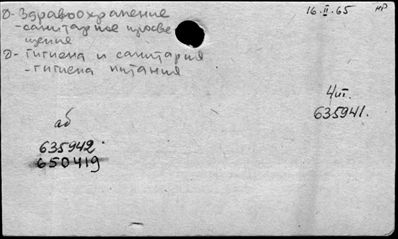 О-Здравоохранение
-санитарное просве
щение
О-Гигиена и санитария
-гигиена питания
16.II.65
нр
4иг.
635941.
аб
635942.
650419